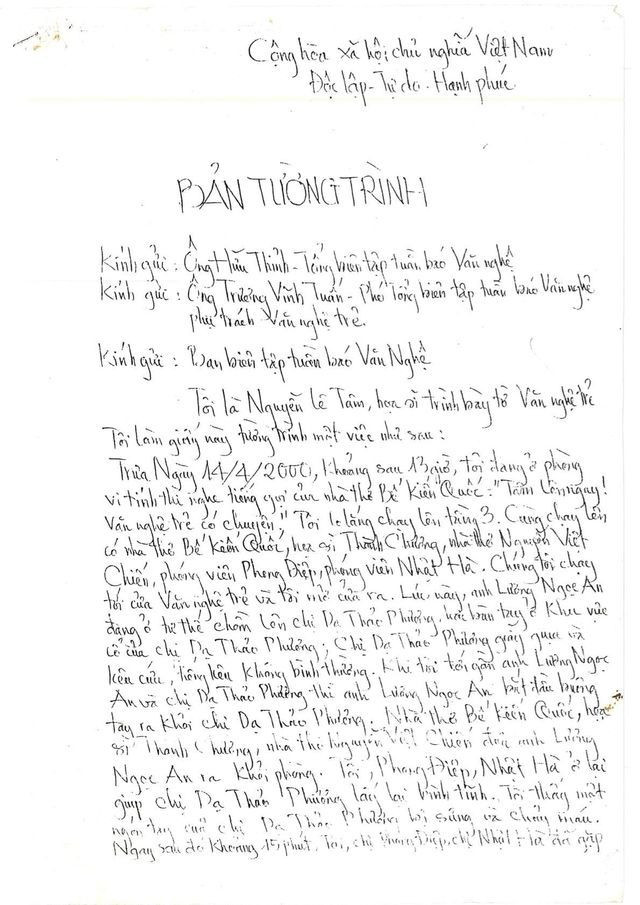 Cộng hòa xã hội chủ nghĩa Việt Nam
Độc lập - Tự do - Hạnh phúc
BẢN TƯỜNG TRÌNH
Kính gửi : Ông Hữu Thỉnh - Tổng biên tập tuần báo Văn nghệ
Kính gửi : Ông Trương Vĩnh Tuấn - Phó Tổng biên tập tuần báo Văn nghệ
phụ trách Văn nghệ trẻ.
Kính gửi : Ban biên tập tuần báo Văn Nghệ
Tôi là Nguyễn Lê Tâm, họa sĩ trình bày tờ Văn nghệ trẻ
Tôi làm giấy này tường trình một việc như sau :
Trưa Ngày 14/4/2000, khoảng sau 13 giờ, tôi đang ở phòng
vi tính thì nghe tiếng gọi của nhà thơ Bế Kiến Quốc : "Tâm lên ngay!
Văn nghệ trẻ có chuyện". Tôi lo lắng chạy lên tầng 3. Cùng chạy lên
có nhà thơ Bế Kiến Quốc, họa sĩ Thành Chương, nhà thơ Nguyễn Việt
Chiến, phóng viên Phong Điệp, phóng viên Nhật Hà. Chúng tôi chạy
tới cửa Văn nghệ trẻ và tôi mở cửa ra. Lúc này, anh Lương Ngọc An
đang ở tư thế chồm lên chị Dạ Thảo Phương, hai bàn tay ở khu vực
cổ của chị Dạ Thảo Phương; Chị Dạ Thảo Phương giãy giụa và
kêu cứu, tiếng kêu không bình thường. Khi tôi tới gần anh Lương Ngọc
An và chị Dạ Thảo Phương thì anh Lương Ngọc An bắt đầu buông
tay ra khỏi chị Dạ Thảo Phương. Nhà thơ Bế Kiến Quốc, họa
sĩ Thành Chương, nhà thơ Nguyễn Việt Chiến đưa anh Lương
Ngọc An ra khỏi phòng. Tôi, Phong Điệp, Nhật Hà ở lại
giúp chị Dạ Thảo Phương lấy lại bình tĩnh. Tôi thấy một
ngón tay của chị Dạ Thảo Phương bị sưng và chảy máu.
Ngay sau đó khoảng 15 phút, Tôi, chị Phong Điệp, chị Nhật Hà đã gặp